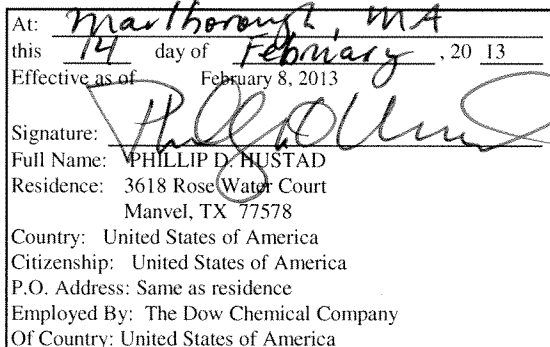 At: Marlborough, MA
this 14 day of February, 20 13
Effective as of February 8, 2013
Signature:
Full Name: PHILLIP D. HUSTAD
Residence: 3618 Rose Water Court
Manvel, TX 77578
Country: United States of America
Citizenship: United States of America
P.O. Address: Same as residence
Employed By: The Dow Chemical Company
Of Country: United States of America